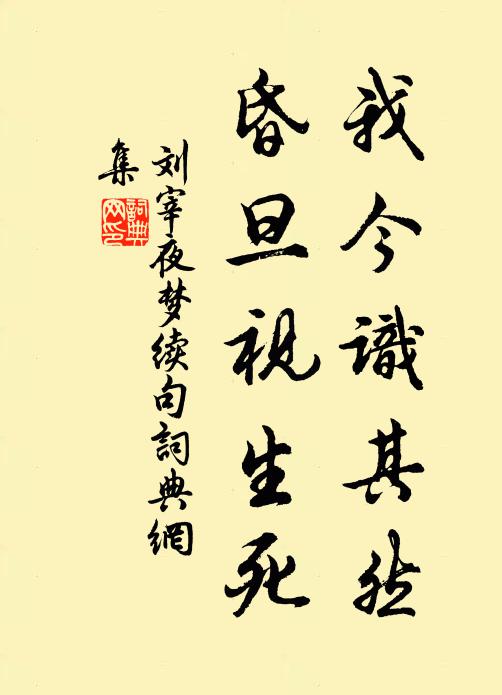 我今識其然
昏旦視生死
刘宰夜梦续句詞典網
集
詞典网印